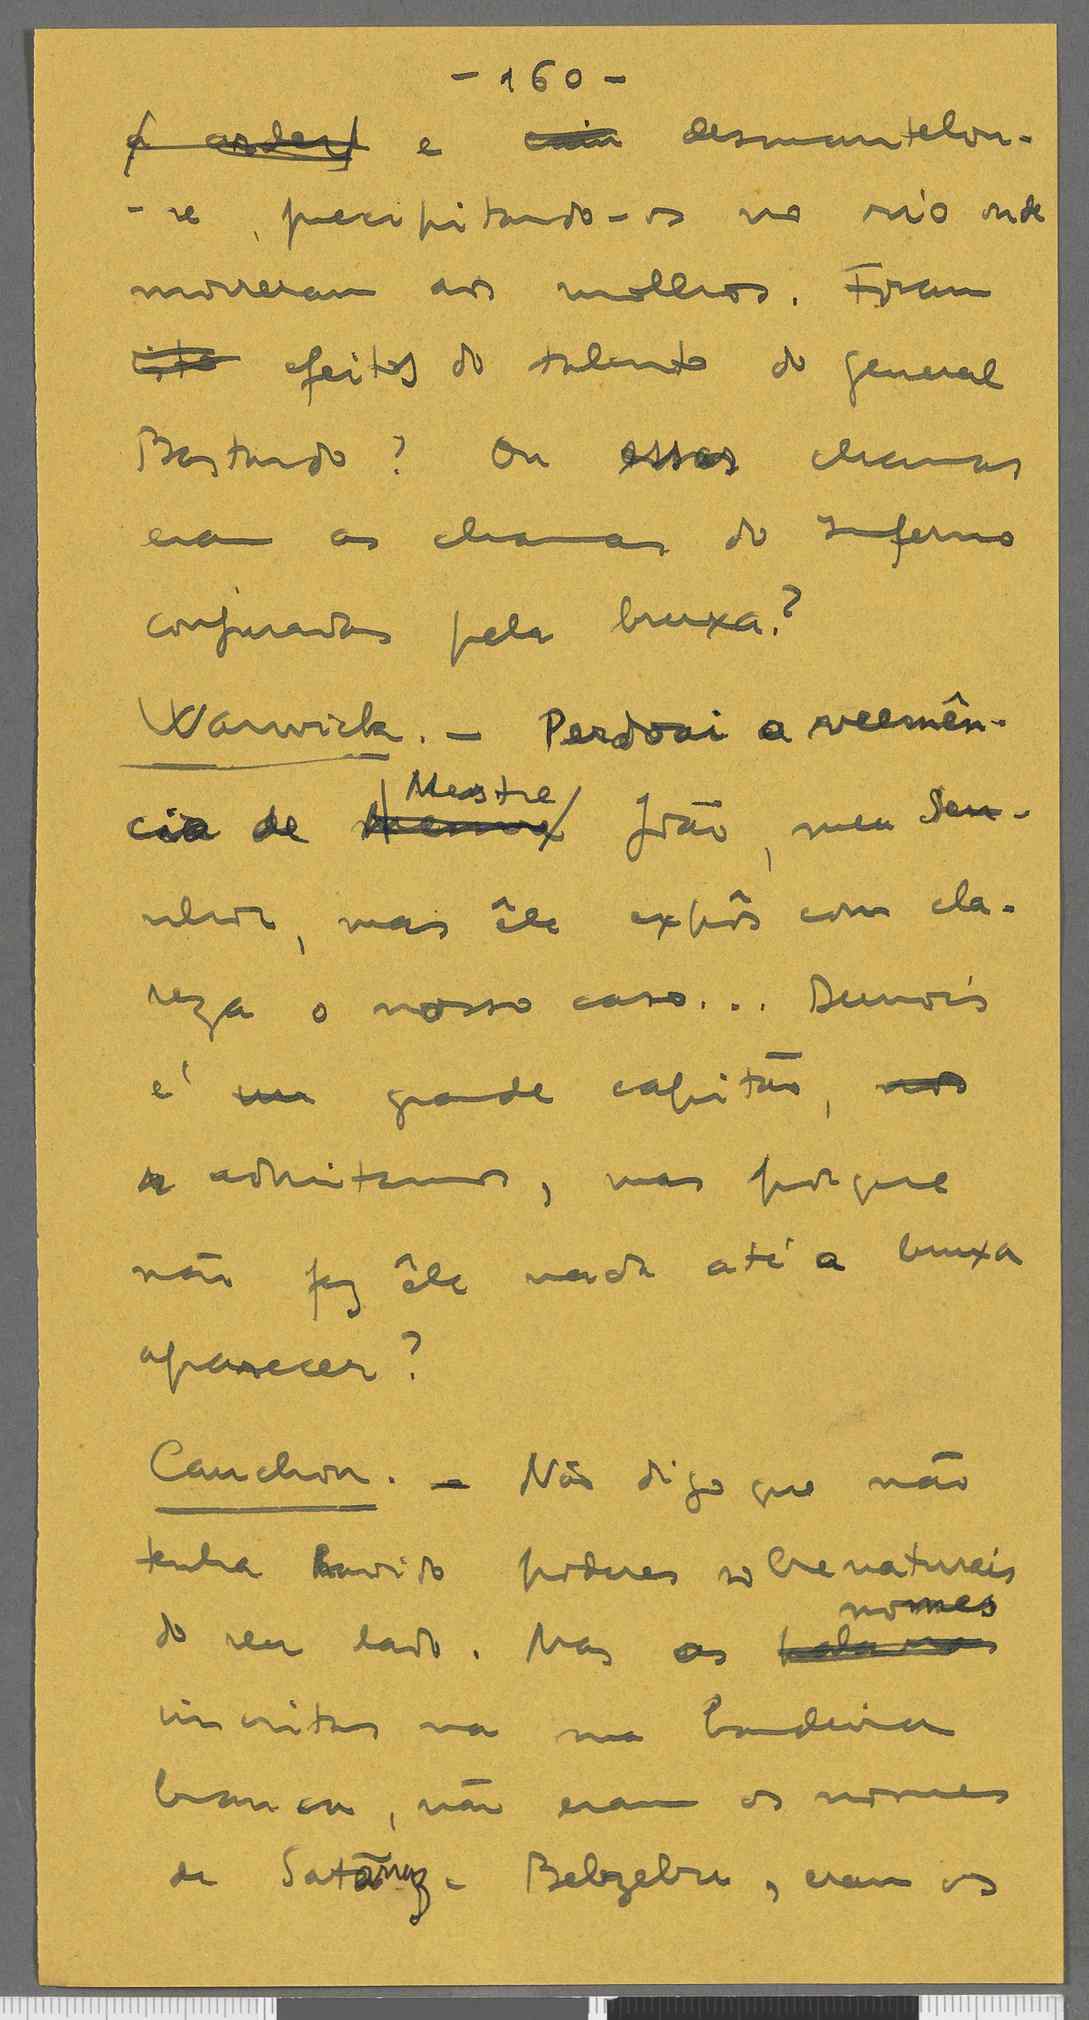 - 160 -
a arder e caiu desmantelou-
-se, precipitando-os no rio onde
morreram aos molhos. Foram
isto efeitos do talento do general
Bastardo? Ou essas chamas
eram as chamas do Inferno
conjuradas pela bruxa?
Warwick. - Perdoai a veemên-
Mestre
cia de João, meu Sen-
nhor, mas êle expôs com cla-
reza o nosso caso... Dunois
é um grande capitão, nós
admitamos, mas porque
não fez êle nada até a bruxa
aparecer?
Cauchon. - Não digo que não
tenha havido poderes sobrenaturais
nomes
do seu lado. Mas os palavras
inscritos na sua bandeira
branca, não eram os nomes
de Satanaz e Belzebu, eram os